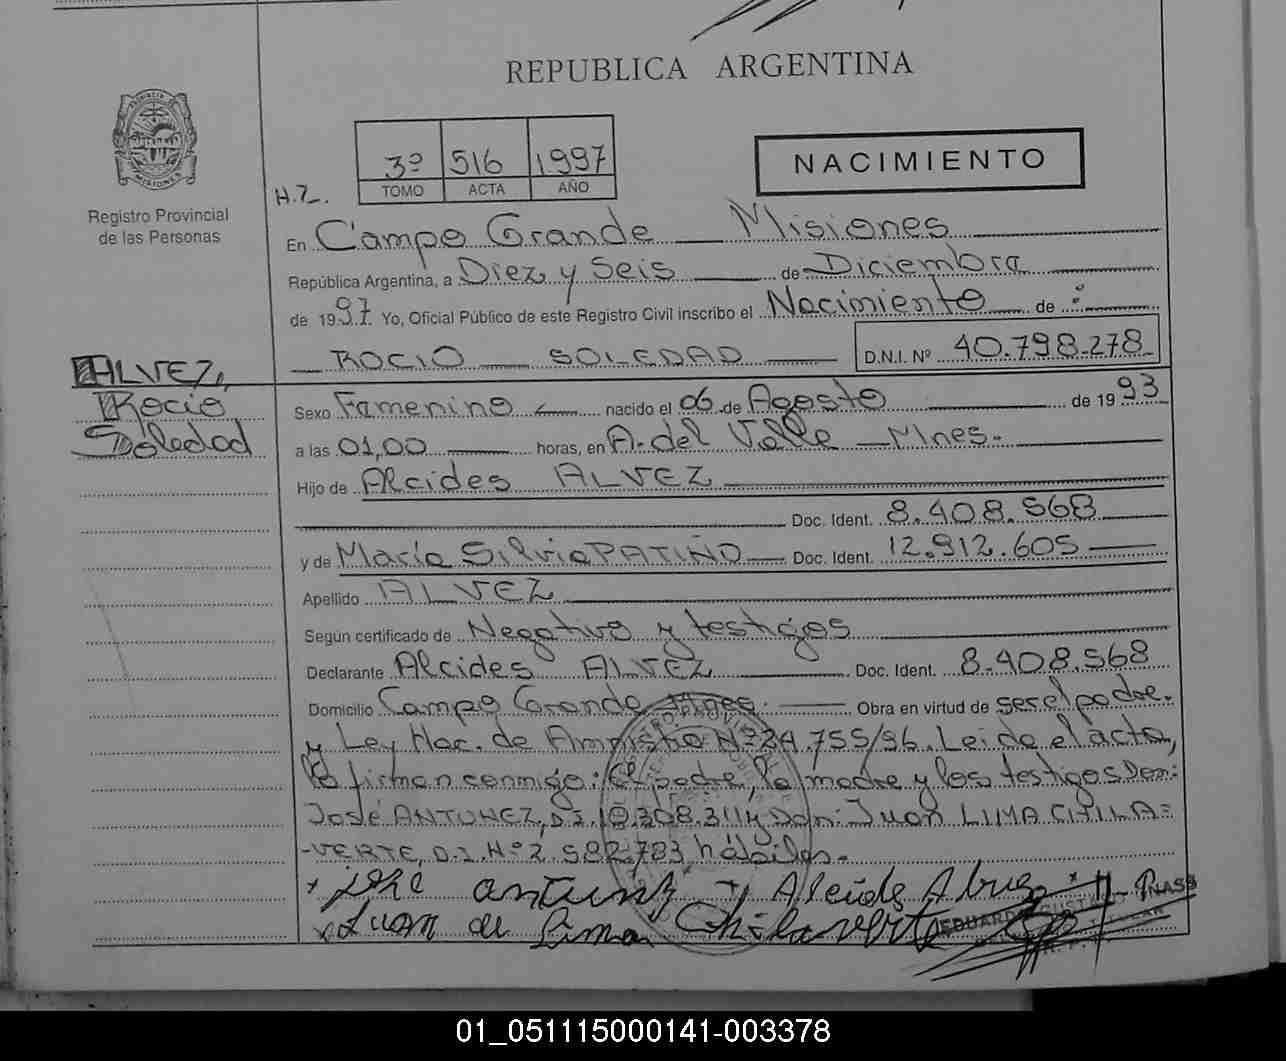 REPUBLICA ARGENTINA
3º 516 1997
TOMO ACTA AÑO
NACIMIENTO
H.7.
Registro Provincial
de las Personas
En Campo Grande Misiones
República Argentina, a Diez y Seis de Diciembre
de 1997. Yo, Oficial Público de este Registro Civil inscribo el Nacimiento de :
ROCIO SOLEDAD D.N.I. Nº 40.798.278
ALVEZ,
Rocio
Soledad
Sexo Femenino nacido el 06 de Agosto de 1993
a las 01,00 horas, en A. del Valle Mnes.
Hijo de Alcides ALVEZ
Doc. Ident. 8.408.568
y de María Silvia PATIÑO Doc. Ident. 12.912.605
Apellido ALVEZ
Según certificado de Negativo y testigos
Declarante Alcides ALVEZ Doc. Ident. 8.408.568
Domicilio Campo Grande Mnes. Obra en virtud de ser el padre.
y Ley Nac. de Amnistia Nº 24.755/96. Leida el acta,
la firman conmigo: el padre, la madre y los testigos Don:
José ANTUNEZ, D.I. 10.308.311 y Don: Juan LIMA CHILA=
-VERTE, D.I. Nº 2.582.783 hábiles.-
x jose antunz Alcide Alvez x
x Juan de Lima Chilaverte
EDUARDO
01_051115000141-003378